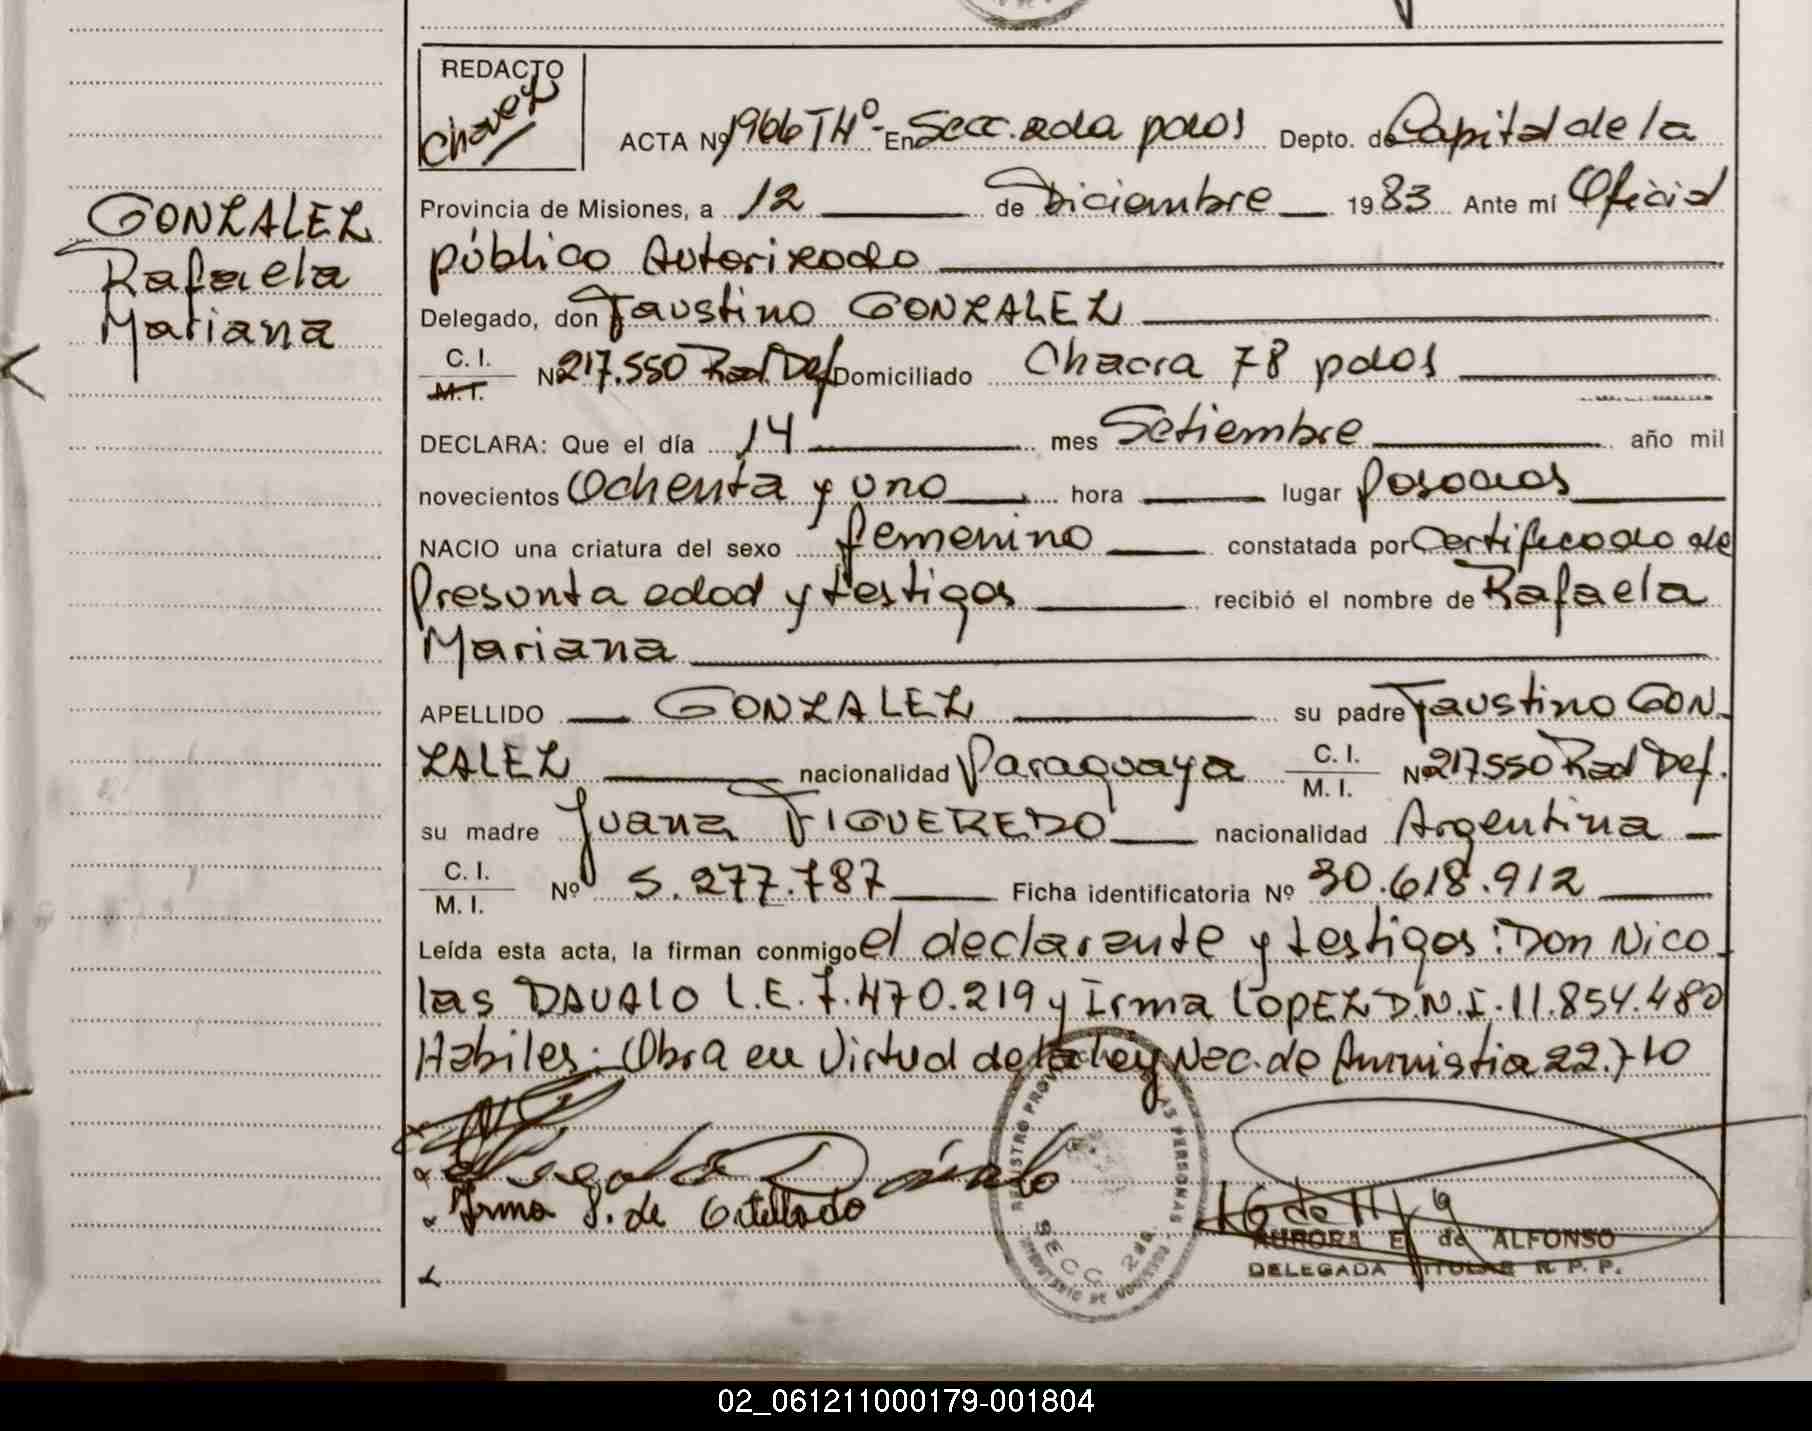 REDACTO
Chavez
ACTA Nº 1966 Tº- En Secc. 2da pdas Depto. de Capital de la
GONZALEZ
Rafaela
Mariana
Provincia de Misiones, a 12 de Diciembre 1983 Ante mí Oficial
público Autorizado
Delegado, don Faustino GONZALEZ
C. I.
M. I. Nº 217.550 Rad Def Domiciliado Chacra 78 pdas
DECLARA: Que el día 14 mes Setiembre año mil
novecientos Ochenta y uno hora lugar Posadas
NACIO una criatura del sexo femenino constatada por Certificado de
Presunta edad y testigos recibió el nombre de Rafaela
Mariana
APELLIDO GONZALEZ su padre Faustino GON
ZALEZ nacionalidad Paraguaya C. I. M. I. Nº 217550 Rad Def.
su madre Juana FIGUEREDO nacionalidad Argentina
C. I.
M. I. Nº 5.277.787 Ficha identificatoria Nº 30.618.912
Leída esta acta, la firman conmigo el declarante y testigos: Don Nico
las DAVALO L.E. 7.470.219 y Irma LOPEZ D.N.I. 11.854.480
Habiles: Obra en Virtud de la ley Nac. de Amnistia 22.710
Irma L. de
REGISTRO PROV AS PERSONAS
SECC. 2da.
AURORA E. de ALFONSO
DELEGADA TITULAR R. P. P.
02_061211000179-001804